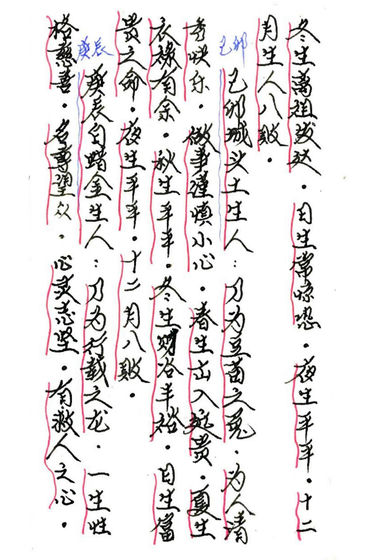 冬生萬祖发达．日生常惊恐．夜生平平．十二
月生人八敗．
己卯
己卯城头土生人：乃为豆苗之兔．为人清
秀快乐．做事謹慎小心．春生出入贵．夏生
衣禄有余．秋生平平．冬生财谷丰裕．日生富
贵之命．夜生平平．十二月八敗．
庚辰
庚辰白蜡金生人：乃为行載之龙．一生性
格慈善．名尊望众．心灵志坚．有救人之心．